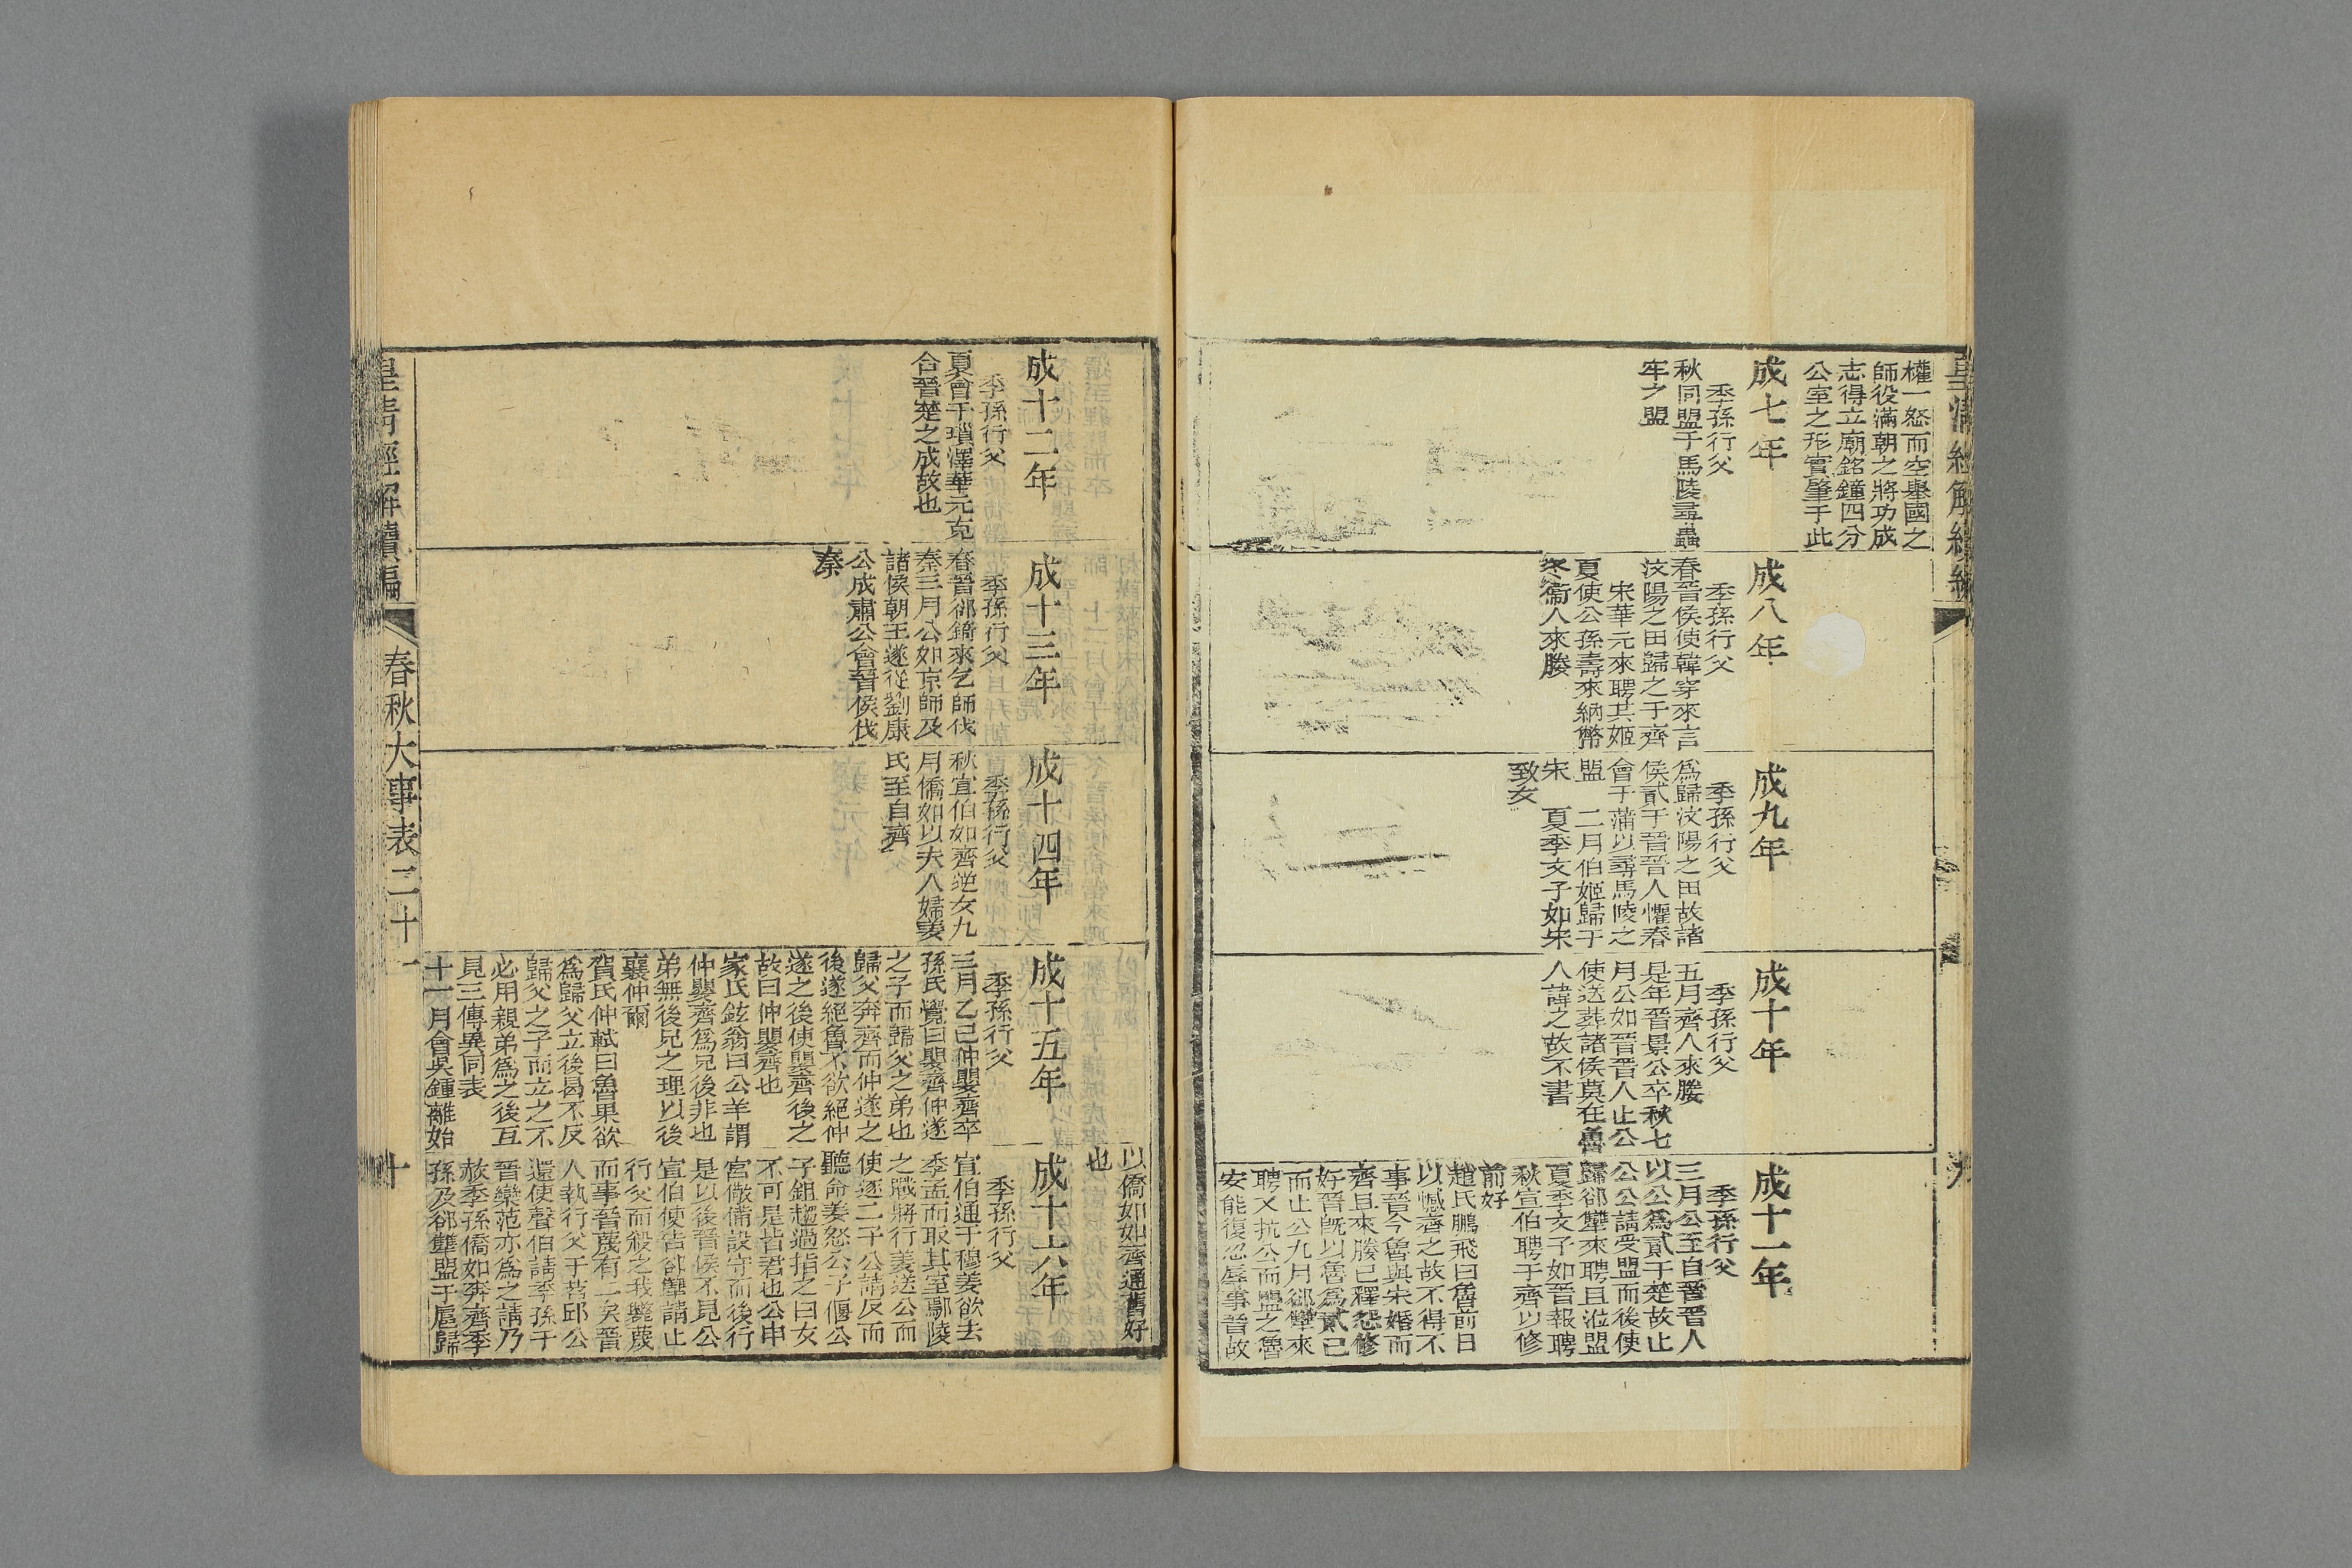 權一怒而空舉國之
師役滿朝之將功成
志得立廟銘鐘四分
公室之形實肇于此
成七年
季孫行父
秋同盟于馬陵尋蟲
牢之盟
成八年
季孫行父
春晉侯使韓穿來言
汶陽之田歸之于齊
宋華元來聘共姬
夏使公孫壽來納幣
冬衞人來媵
成九年
季孫行父
爲歸汶陽之田故諸
侯貳于晉晉人懼春
會于蒲以尋馬陵之
盟 二月伯姬歸于
宋 夏季文子如宋
致女
成十年
季孫行父
五月齊人來媵
是年晉景公卒秋七
月公如晉晉人止公
使送葬諸侯莫在魯
人諱之故不書
成十一年
季孫行父
三月公至自晉晉人
以公爲貳于楚故止
公公請受盟而後使
歸郤犫來聘且涖盟
夏季文子如晉報聘
秋宣伯聘于齊以修
前好
趙氏鵬飛曰魯前日
以憾齊之故不得不
事晉今魯與宋婚而
齊且來媵已釋怨修
好晉旣以魯爲貳己
而止公九月郤犫來
聘又抗公而盟之魯
安能復忍辱事晉故
九
以僑如如齊通舊好
也
成十二年
季孫行父
夏會于瑣澤華元克
合晉楚之成故也
成十三年
季孫行父
春晉郤錡來乞師伐
秦三月公如京師及
諸侯朝王遂從劉康
公成肅公會晉侯伐
秦
成十四年
季孫行父
秋宣伯如齊逆女九
月僑如以夫人婦姜
氏至自齊
成十五年
季孫行父
三月乙巳仲嬰齊卒
孫氏覺曰嬰齊仲遂
之子而歸父之弟也
歸父奔齊而仲遂之
後遂絕魯不欲絕仲
遂之後使嬰齊後之
故曰仲嬰齊也
家氏鉉翁曰公羊謂
仲嬰齊爲兄後非也
弟無後兄之理以後
襄仲爾
賀氏仲軾曰魯果欲
爲歸父立後曷不反
歸父之子而立之不
必用親弟爲之後互
見三傳異同表
十一月會吳鍾離始
成十六年
季孫行父
宣伯通于穆姜欲去
季孟而取其室鄢陵
之戰將行姜送公而
使逐二子公請反而
聽命姜怒公子偃公
子鉏趨過指之曰女
不可是皆君也公申
宮儆備設守而後行
是以後晉侯不見公
宣伯使告郤犫請止
行父而殺之我斃蔑
而事晉蔑有二矣晉
人執行父于苕邱公
還使聲伯請季孫于
晉欒范亦爲之請乃
赦季孫僑如奔齊季
孫及郤犫盟于扈歸
皇淸經解續編
春秋大事表二十一
十